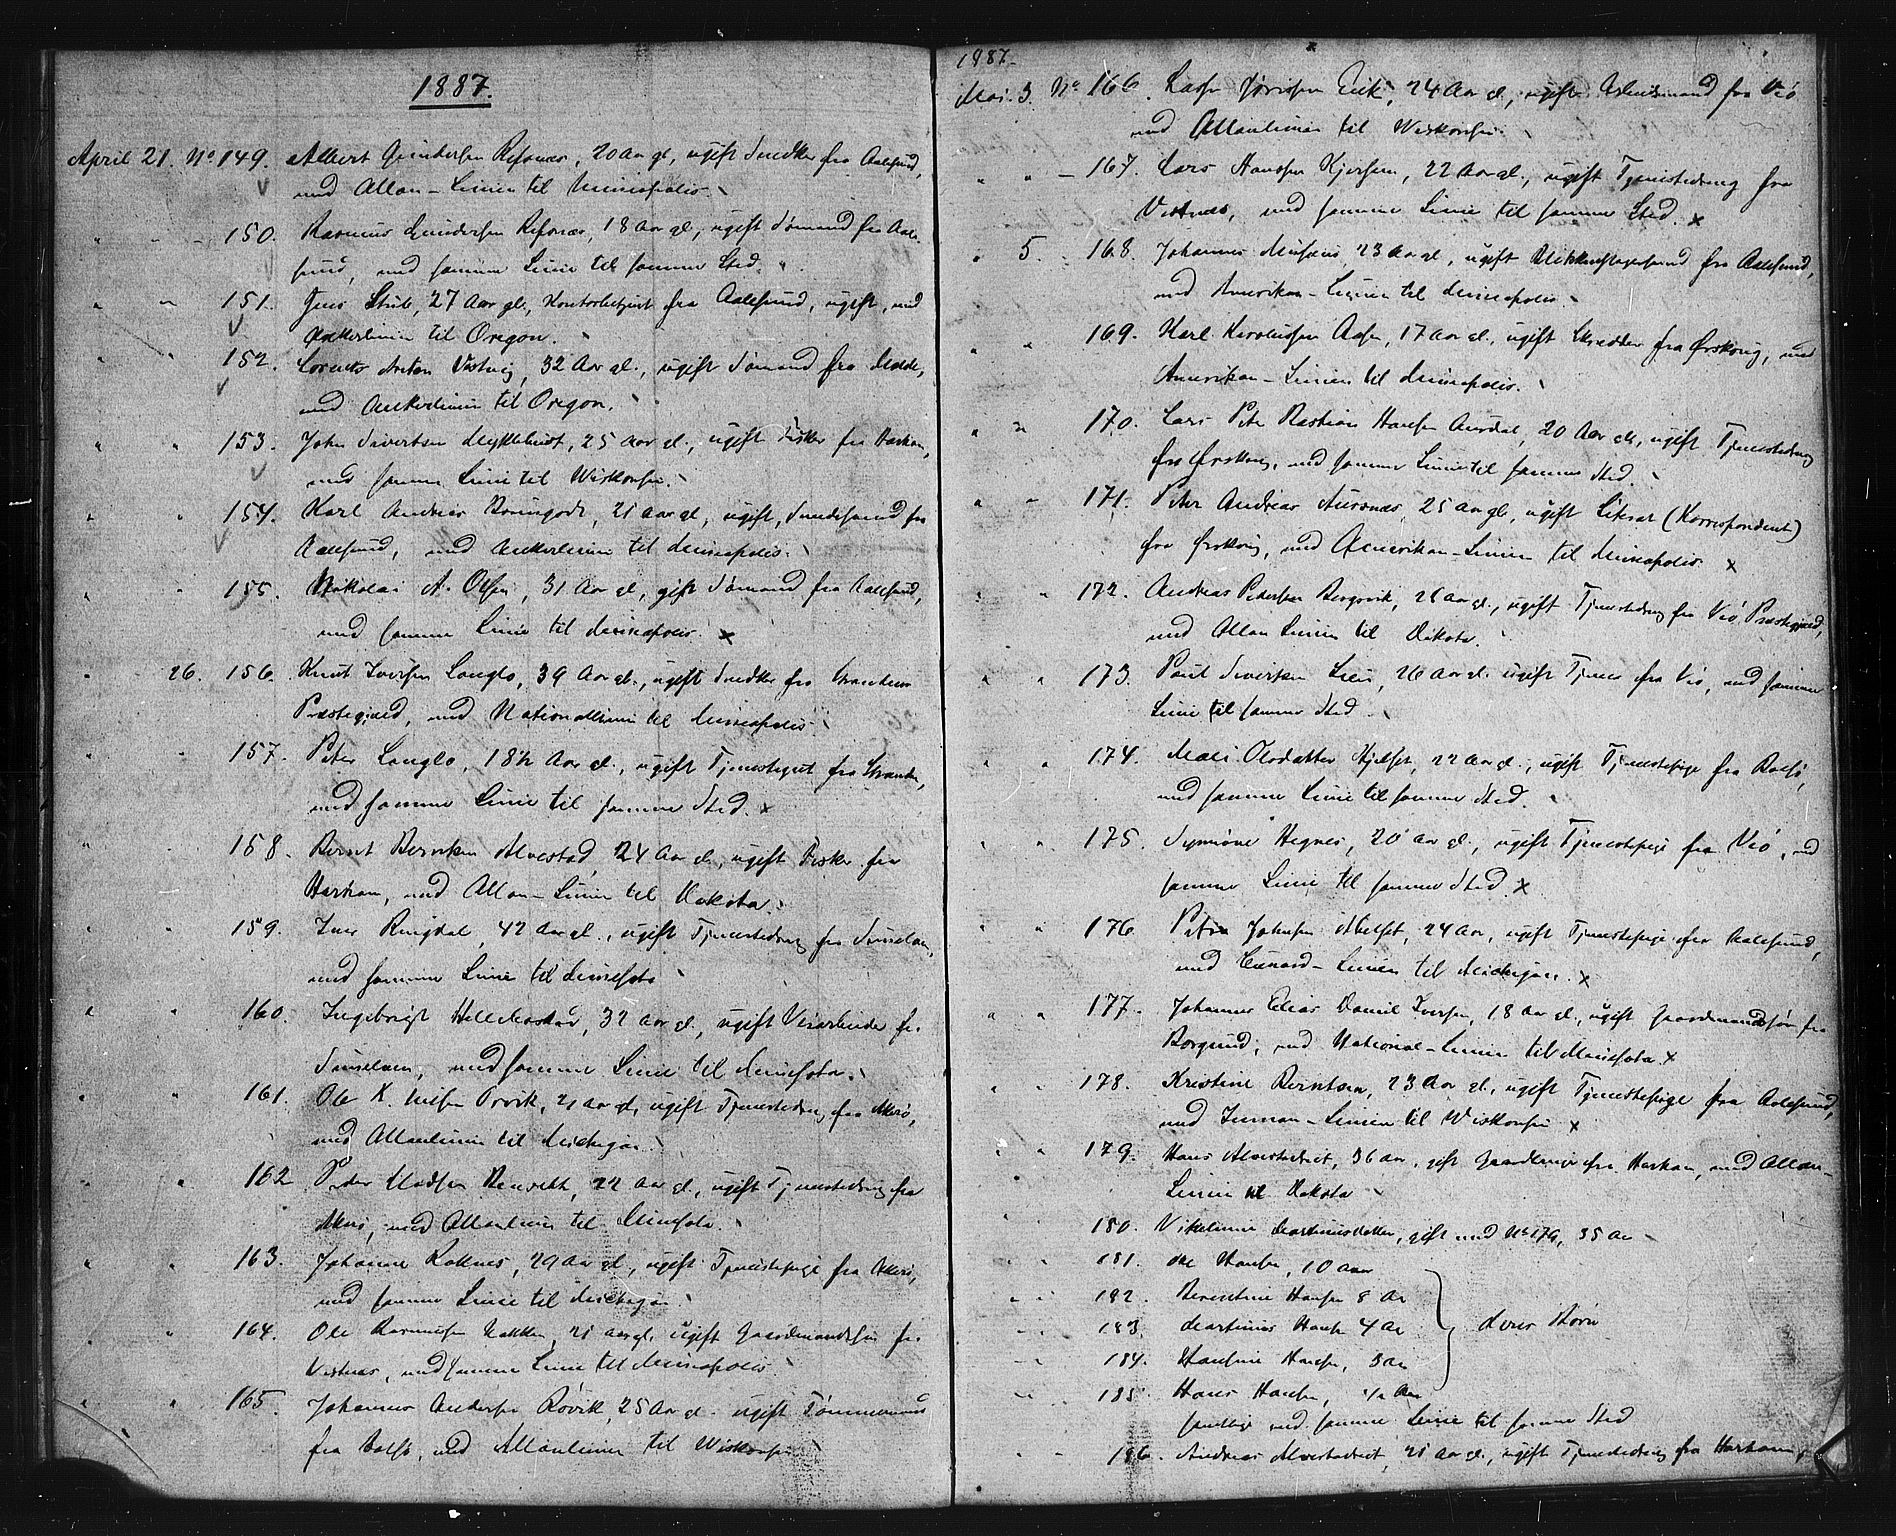 1887.
April 21. No 149. Albert Gundersen Refsnæs, 20 Aar gl, ugift Snedker fra Aalesund,
med Allan-Linien til Minneapolis.
" " - 150. Rasmus Gundersen Refsnæs, 18 Aar gl, ugift Sømand fra Aale-
sund, med samme Linie til samme Sted.
" " 151. Jens Strib, 27 Aar gl., Kontorbetjent fra Aalesund, ugift, med
Ankerlinien til Oregon.
" " 152. Lorents Anton Vestvig, 32 Aar gl., ugift Sømand fra Molde,
med Ankerlinien til Oregon.
" " 153. John Sivertsen Myklebust, 25 Aar gl., ugift Fisker fra Harham,
med samme Linie til Wiskonsin.
" " 154. Karl Andreas, 21 Aar gl, ugift, fra
Aalesund, med Ankerlinien til Minneapolis.
" " 155. Nikolai A. Olsen, 31 Aar gl, gift Sømand fra Aalesund,
med samme Linie til Minneapolis. x
" 26. 156. Knut Iversen Langlo, 39 Aar gl., ugift Snedker fra Stranden
Præstegjæld, med Nationallinien til Minneapolis.
" " 157. Peter Langlo, 18½ Aar gl., ugift Tjenestegut fra Stranden,
med samme Linie til samme Sted. x
" 158. Bernt Berntsen Alvestad, 24 Aar gl, ugift Fisker fra
Harham, med Allan-Linien til Dakota.
" " 159. Iver Ringdal, 42 Aar gl., ugift Tjenestedreng fra Sunelven,
med samme Linie til Minnesota
" " 160. Ingebrigt Hellebostad, 32 Aar gl., ugift fra
Sunelven, med samme Linie til Minnesota.
" " 161. Ole K. Nilsen Orvik, 21 Aar gl, ugift Tjenestedreng fra Akerø,
med Allanlinien til Michigan.
" " 162 Peder Madsen, 22 Aar gl., ugift Tjenestedreng fra
Akerø, med Allanlinien til Minnesota.
" " 163. Johanne Roknes, 29 Aar gl, ugift Tjenestepige fra Akerø,
med samme Linie til Michigan.
" " 164. Ole Rasmusen Nakken, 21 Aar gl. ugift Gaardmandssøn fra
Vestnes, med samme Linie til Minneapolis
" " 165. Johannes Andersen Røvik, 25 Aar gl. ugift Tømmermand
fra Bolsø, med Allanlinien til Wiskonsin
1887.
Mai. 3. No 166. Lasse Jørissen Eik, 24 Aar gl., ugift Arbeidsmand fra Veø
med Allanlinien til Wiskonsin.
" " - 167. Lars Hansen, 22 Aar gl., ugift Tjenestedreng fra
Vestnes, med samme Linie til samme Sted. x
" 5. - 168. Johannes Musæus, 23 Aar gl, ugift Blikkenslagersvend fra Aalesund,
med Amerikan-Linien til Minneapolis.
" " 169. Karl Karolussen Aasen, 17 Aar gl., ugift Skrædder fra Ørskoug, med
Amerikan-Linien til Minneapolis.
" " 170. Lars Peter Bastian Hansen Aurdal, 20 Aar gl, ugift Tjenestedreng
fra Ørskoug, med samme Linie til samme Sted.
" " 171. Peter Andreas Aursnæs, 25 Aar gl, ugift Literat (Korrespondent)
fra Ørskoug, med Amerikan-Linien til Minneapolis. x
" " 172. Andreas Pedersen Bergsvik, 21 Aar gl., ugift Tjenestedreng fra Veø Præstegjæld,
med Allan Linien til Dakota.
" " 173. Paul Sivertsen Lien, 26 Aar gl. ugift Tjener fra Veø, med samme
Linie til samme Sted.
" " 174. Mali Olsdatter Hjelset, 22 Aar gl., ugift Tjenestepige fra Bolsø,
med samme Linie til samme Sted.
" " 175. Synnøve Hegnes, 20 Aar gl, ugift Tjenestepige fra Veø, med
samme Linie til samme Sted x
" " 176 Petra Johnsen Mælset, 24 Aar, ugift Tjenestepige fra Aalesund,
med Cunard-Linien til Michigan. x
" " 177. Johannes Elias Daniel Iversen, 18 Aar gl, ugift Gaardmandssøn fra
Borgund, med National-Linien til Minnesota x
" " 178. Kristine Berntsen, 23 Aar gl., ugift Tjenestepige fra Aalesund,
med Inman-Linien til Wiskonsin x
" " 179. Hans Alvestadvet, 36 Aar, gift fra Harham, med Allan-
Linien til Dakota
" " 180. Vikelinne Martinusdatter, gift med No 179, 35 Aar
" " 181. Ole Hansen, 10 Aar
" " 182. Berentine Hansen 8 Aar
" " 183. Martinus Hansen 4 Aar } deres Børn
" " 184. Hansine Hansen, 3 Aar
" " 185. Hans Hansen, ½ Aar
samtlige med samme Linie til samme Sted
" " 186. Andreas Alvestadvet, 21 Aar gl., ugift Tjenestedreng fra Harham,